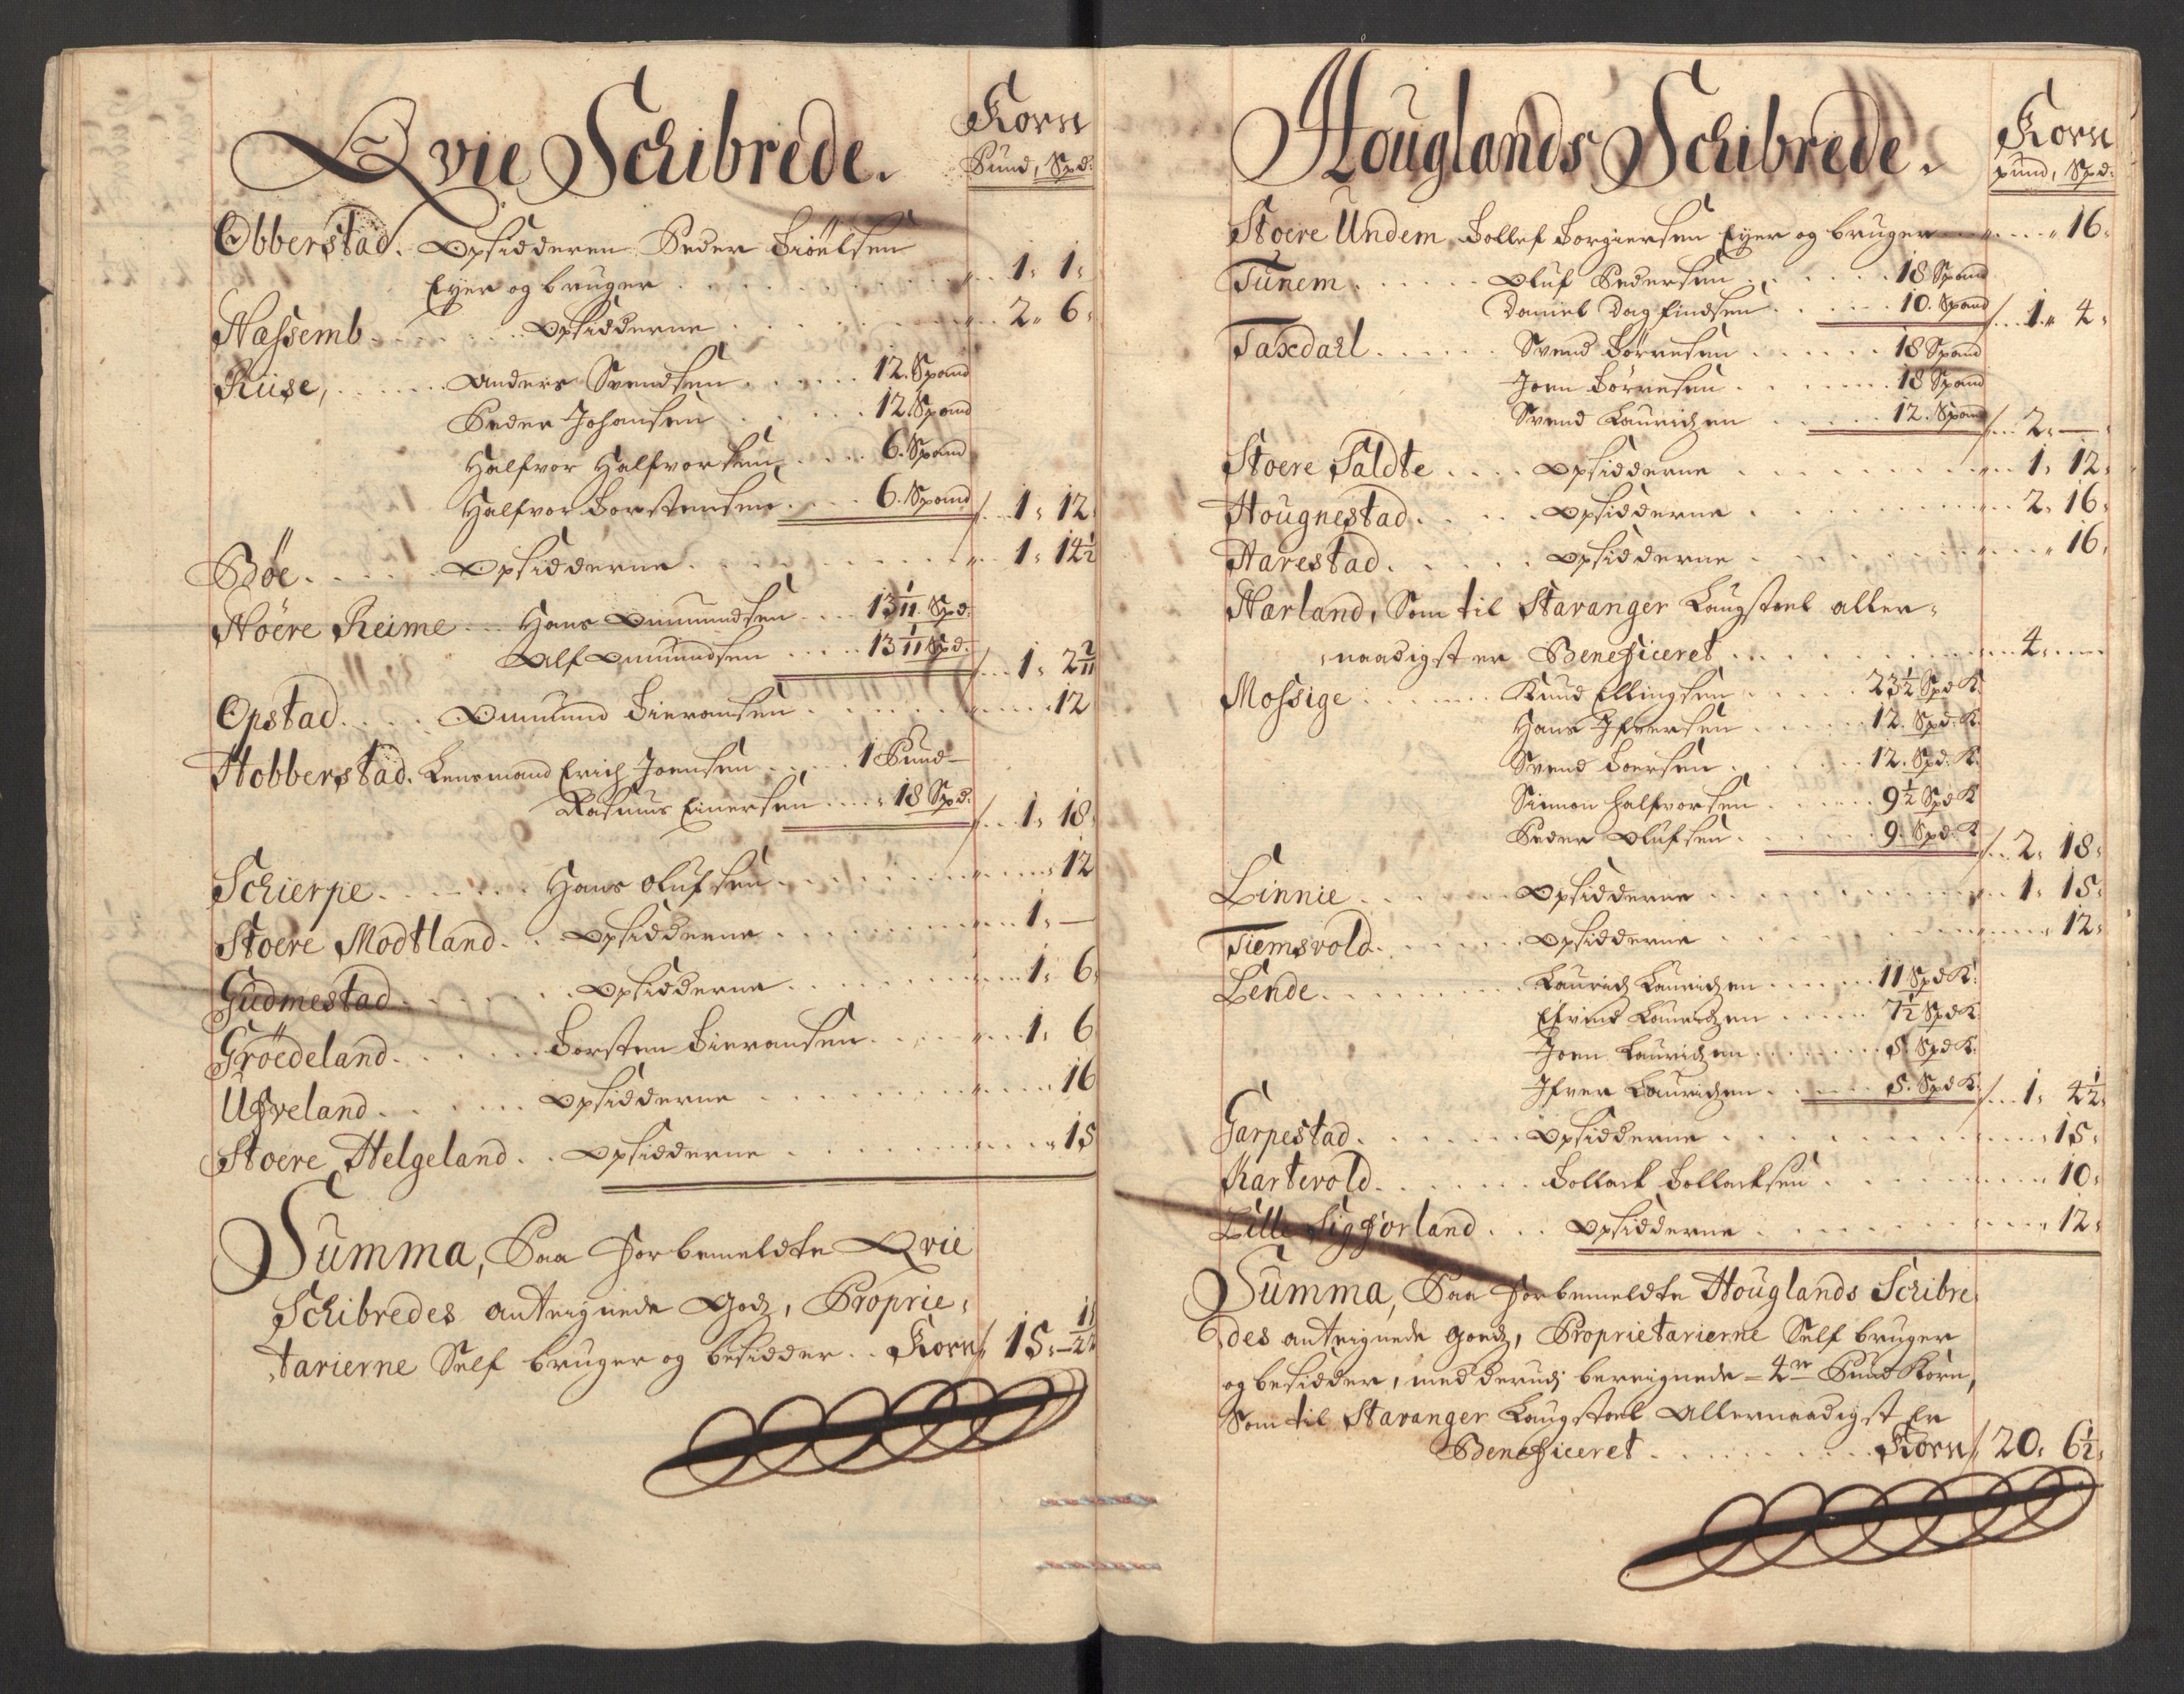 Qvie Schibrede.
Korn
Pund, Spd:
Obberstad. Opsidderen Peder Tiöelsen
Eÿer og bruger . . . 1, 1,
Hassemb. . . . Opsidderne . . . 2, 6,
Riise, . . . Anders Svendsen . . . 12. Spand
Peder Johansen . . . 12. Spand
Halfvor Halfvorsen . . . 6. Spand
Halfvor Torstensen . . . 6. Spand /. . 1, 12,
Böe. . . . Opsidderne . . . 1, 14½
Nöere Reime . . Hans Ommundsen . . 13 1/11 Spd:
Olf Ommundsen . . . 13 1/11 Spd. /. . 1, 2 2/11
Opstad. . . . Ommund Tieransen . . . 12
Hobberstad. Lensmand Erich Joensen . . . 1 Pund —
Rasmus Einersen . . . 18 Spd. /. . 1, 18,
Schierpe. . . . Hans Olufsen . . . 12
Stoere Modtland. . Opsidderne . . . 1, —
Gudmestad . . . Opsidderne . . . 1, 6,
Gröedeland. . . . Torsten Tieransen . . . 1, 6
Ufveland. . . . Opsidderne . . . 16
Stoere Helgeland. . Opsidderne . . . 15
Summa, Paa forbemeldte Qvie
Schibredes antegnede Godz, Proprie,
,tarierne Self bruger og besidder . . Korn/ 15, — 11/22
Houglands Schibrede.
Korn
pund, Spd:
Stoere Undem Tollef Torgiersen Eÿer og bruger . . . 16,
Tunem. . . . Oluf Pedersen . . . 18 Spand
Daniel Dagfindsen . . . 10. Spand /. . 1, 4,
Taxdall. . . . Svend Törresen . . . 18 Spand
Joen Törresen . . . 18 Spand
Svend Lauridzen . . . 12. Spand /. . 2, —
Stoere Saldte . . . Opsidderne . . . 1, 12,
Hougnestad. . . . Opsidderne . . . 2, 16,
Harestad. . . . Opsidderne . . . 16,
Harland, Som til Stavanger Laugstoel aller,
,naadigst er Beneficeret . . . 4, —
Mossige . . . Knud Ellingsen . . . 23½ Spd K:
Hans Ifversen . . . 12. Spd. K.
Svend Toersen . . . 12. Spd. K.
Simon Halfvorsen . . . 9½ Spd K
Peder Olufsen . . . 9. Spd. K /. . 2, 18,
Linnie . . . Opsidderne . . . 1, 15,
Tiemsvold. . . . Opsidderne . . . 12,
Lende. . . . Laurids Lauridzen . . . 11 Spd K:
Eivind Lauridzen . . . 7½ Spd K
Joen Lauridzen . . . 5. Spd K.
Ifver Lauridzen . . . 5. Spd K. /. . 1, 4½,
Garpestad. . . . Opsidderne . . . 15,
Kartevold. . . . Tollack Tollacksen . . . 10,
Lille Sigforland . . . Opsidderne . . . 12,
Summa, Paa forbemeldte Houglands Scribre,
,des antegnede Goedz, Proprietarierne Self bruger
og besidder, med derudj beregnede = 4re Pund Korn,
Som til Stavanger Laugstoel Allernaadigst Er
Beneficeret . . . Korn/ 20, 6½,